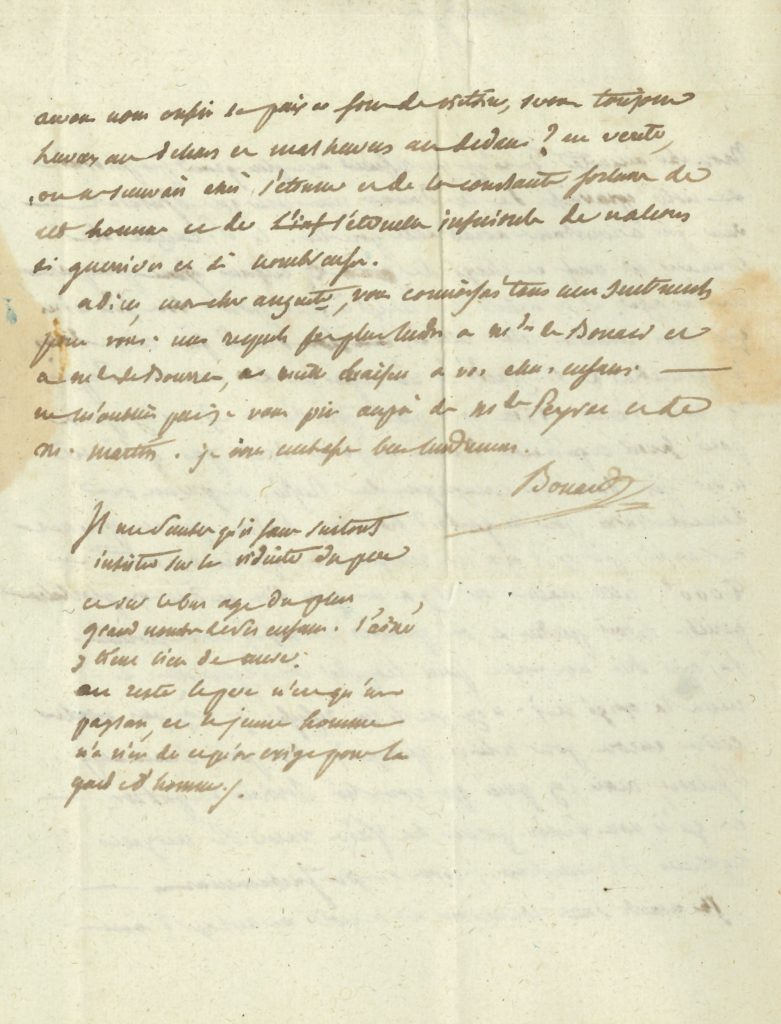 aurons nous enfin la paix a force de victoires, serons toujours
heureux au dehors et malheureux au dedans? en verité,
on ne sauroit assés s'étonner et de la constante fortune de
cet homme et de l'éternelle infériorité de nations
si guerrieres et si nombreuses.
adieu, mon cher auguste, vous connoissés tous mes sentiments
pour vous. mes respects les plus tendres a Mde de Bonald et
a Mde de Bourran, et mille baisers a vos chers enfans.
ne m'oubliés pas je vous prie auprès de Mde Peyrot et de
M. martin. je vous embrasse bien tendrement.
Bonald
Il me semble qu'il faut surtout
insister sur la viduité du pere
et sur le bas age du plus
grand nombre de ses enfans. l'ainé
y tient lieu de mere.
au reste le pere n'est qu'un
paysan, et le jeune homme
n'a rien de ce qu'on exige pour la
garde d'honneur.